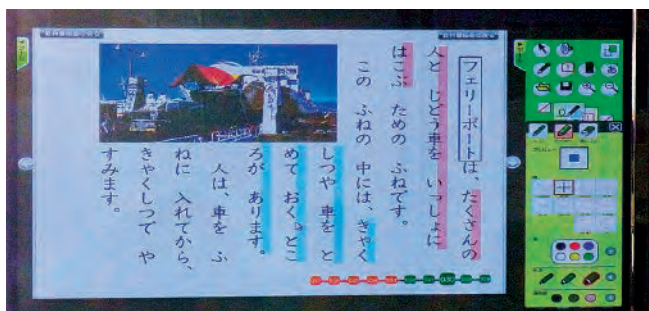 フェリーボートは、たくさんの
人と じどう車を いっしょに
はこぶ ための ふねです。
この ふねの 中には、きゃく
しつや 車を と
めて おく とこ
ろが あります。
人は、車を ふ
ねに 入れてから、
きゃくしつで や
すみます。